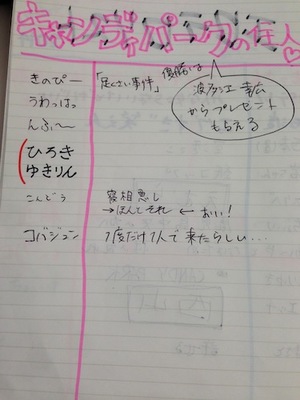 キャンディパークの住人
きのぴー 「足くさい事件」
優勝者は
からプレゼント
もらえる
うわっはっ
んふ～
ひろき
ゆきりん
こんどう 寝相悪し
→ほんとそれ ← おい！
コバジュン 1度だけ1人で来たらしい…